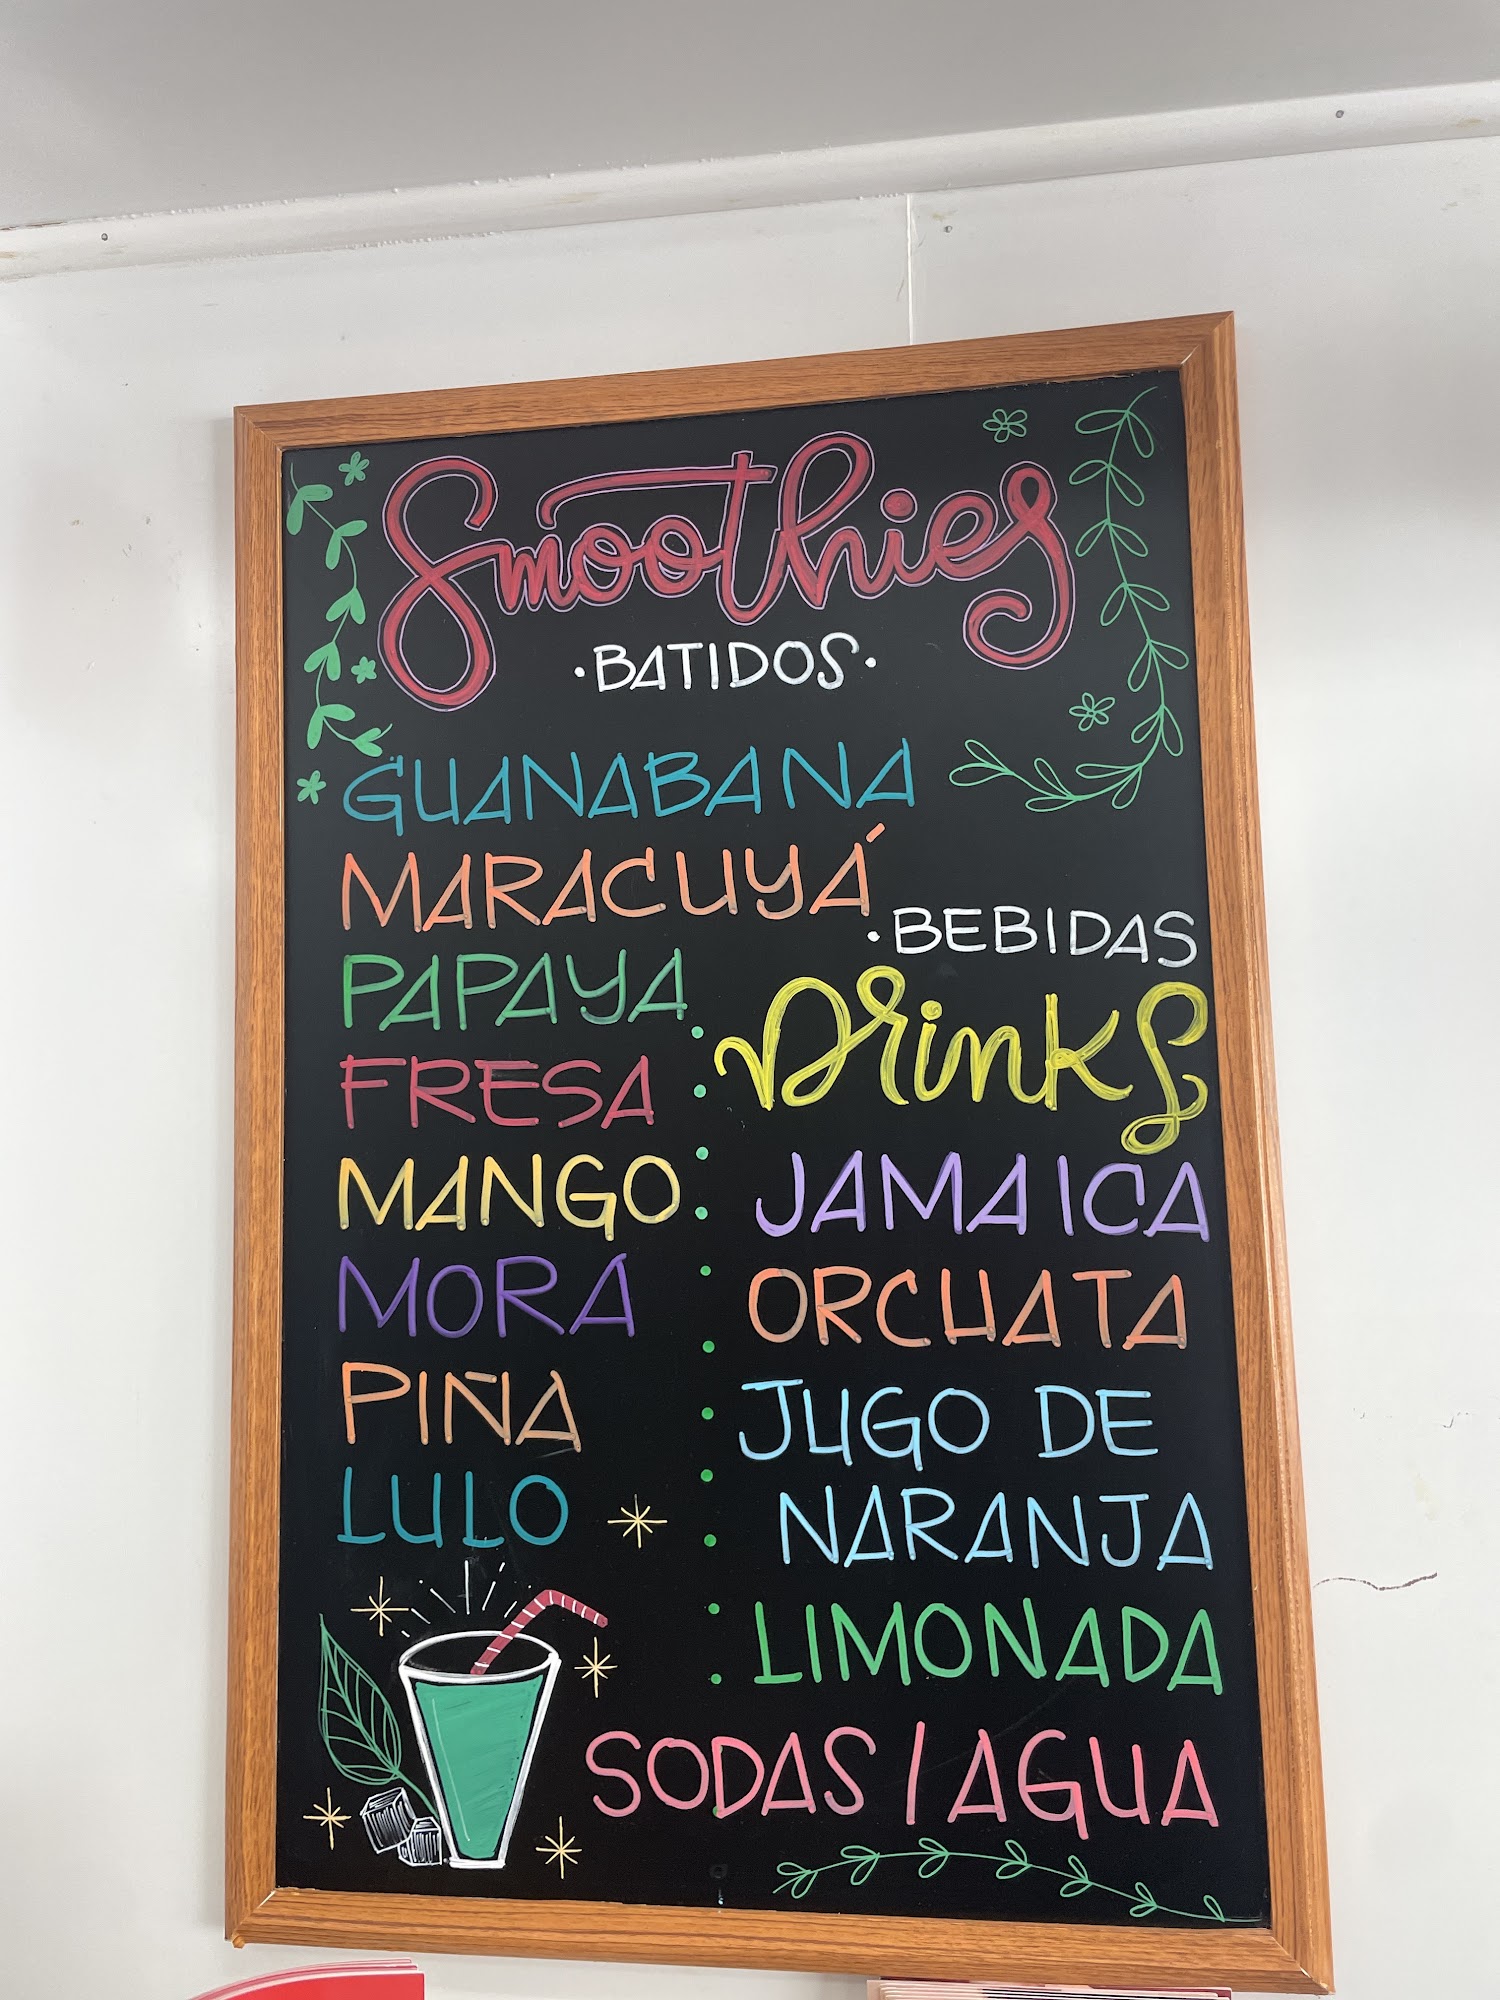 Smoothies
·BATIDOS·
GUANABANA
MARACUYÁ
PAPAYA
FRESA
MANGO
MORA
PIÑA
LULO
·BEBIDAS
Drinks
JAMAICA
ORCHATA
JUGO DE
NARANJA
LIMONADA
SODAS/AGUA